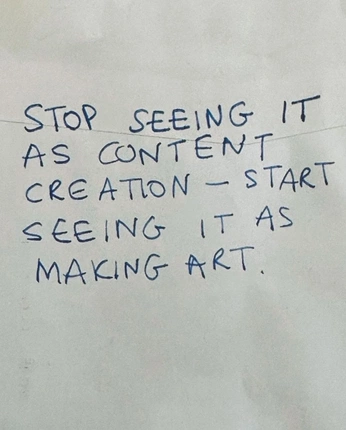 STOP SEEING IT
AS CONTENT
CREATION – START
SEEING IT AS
MAKING ART.